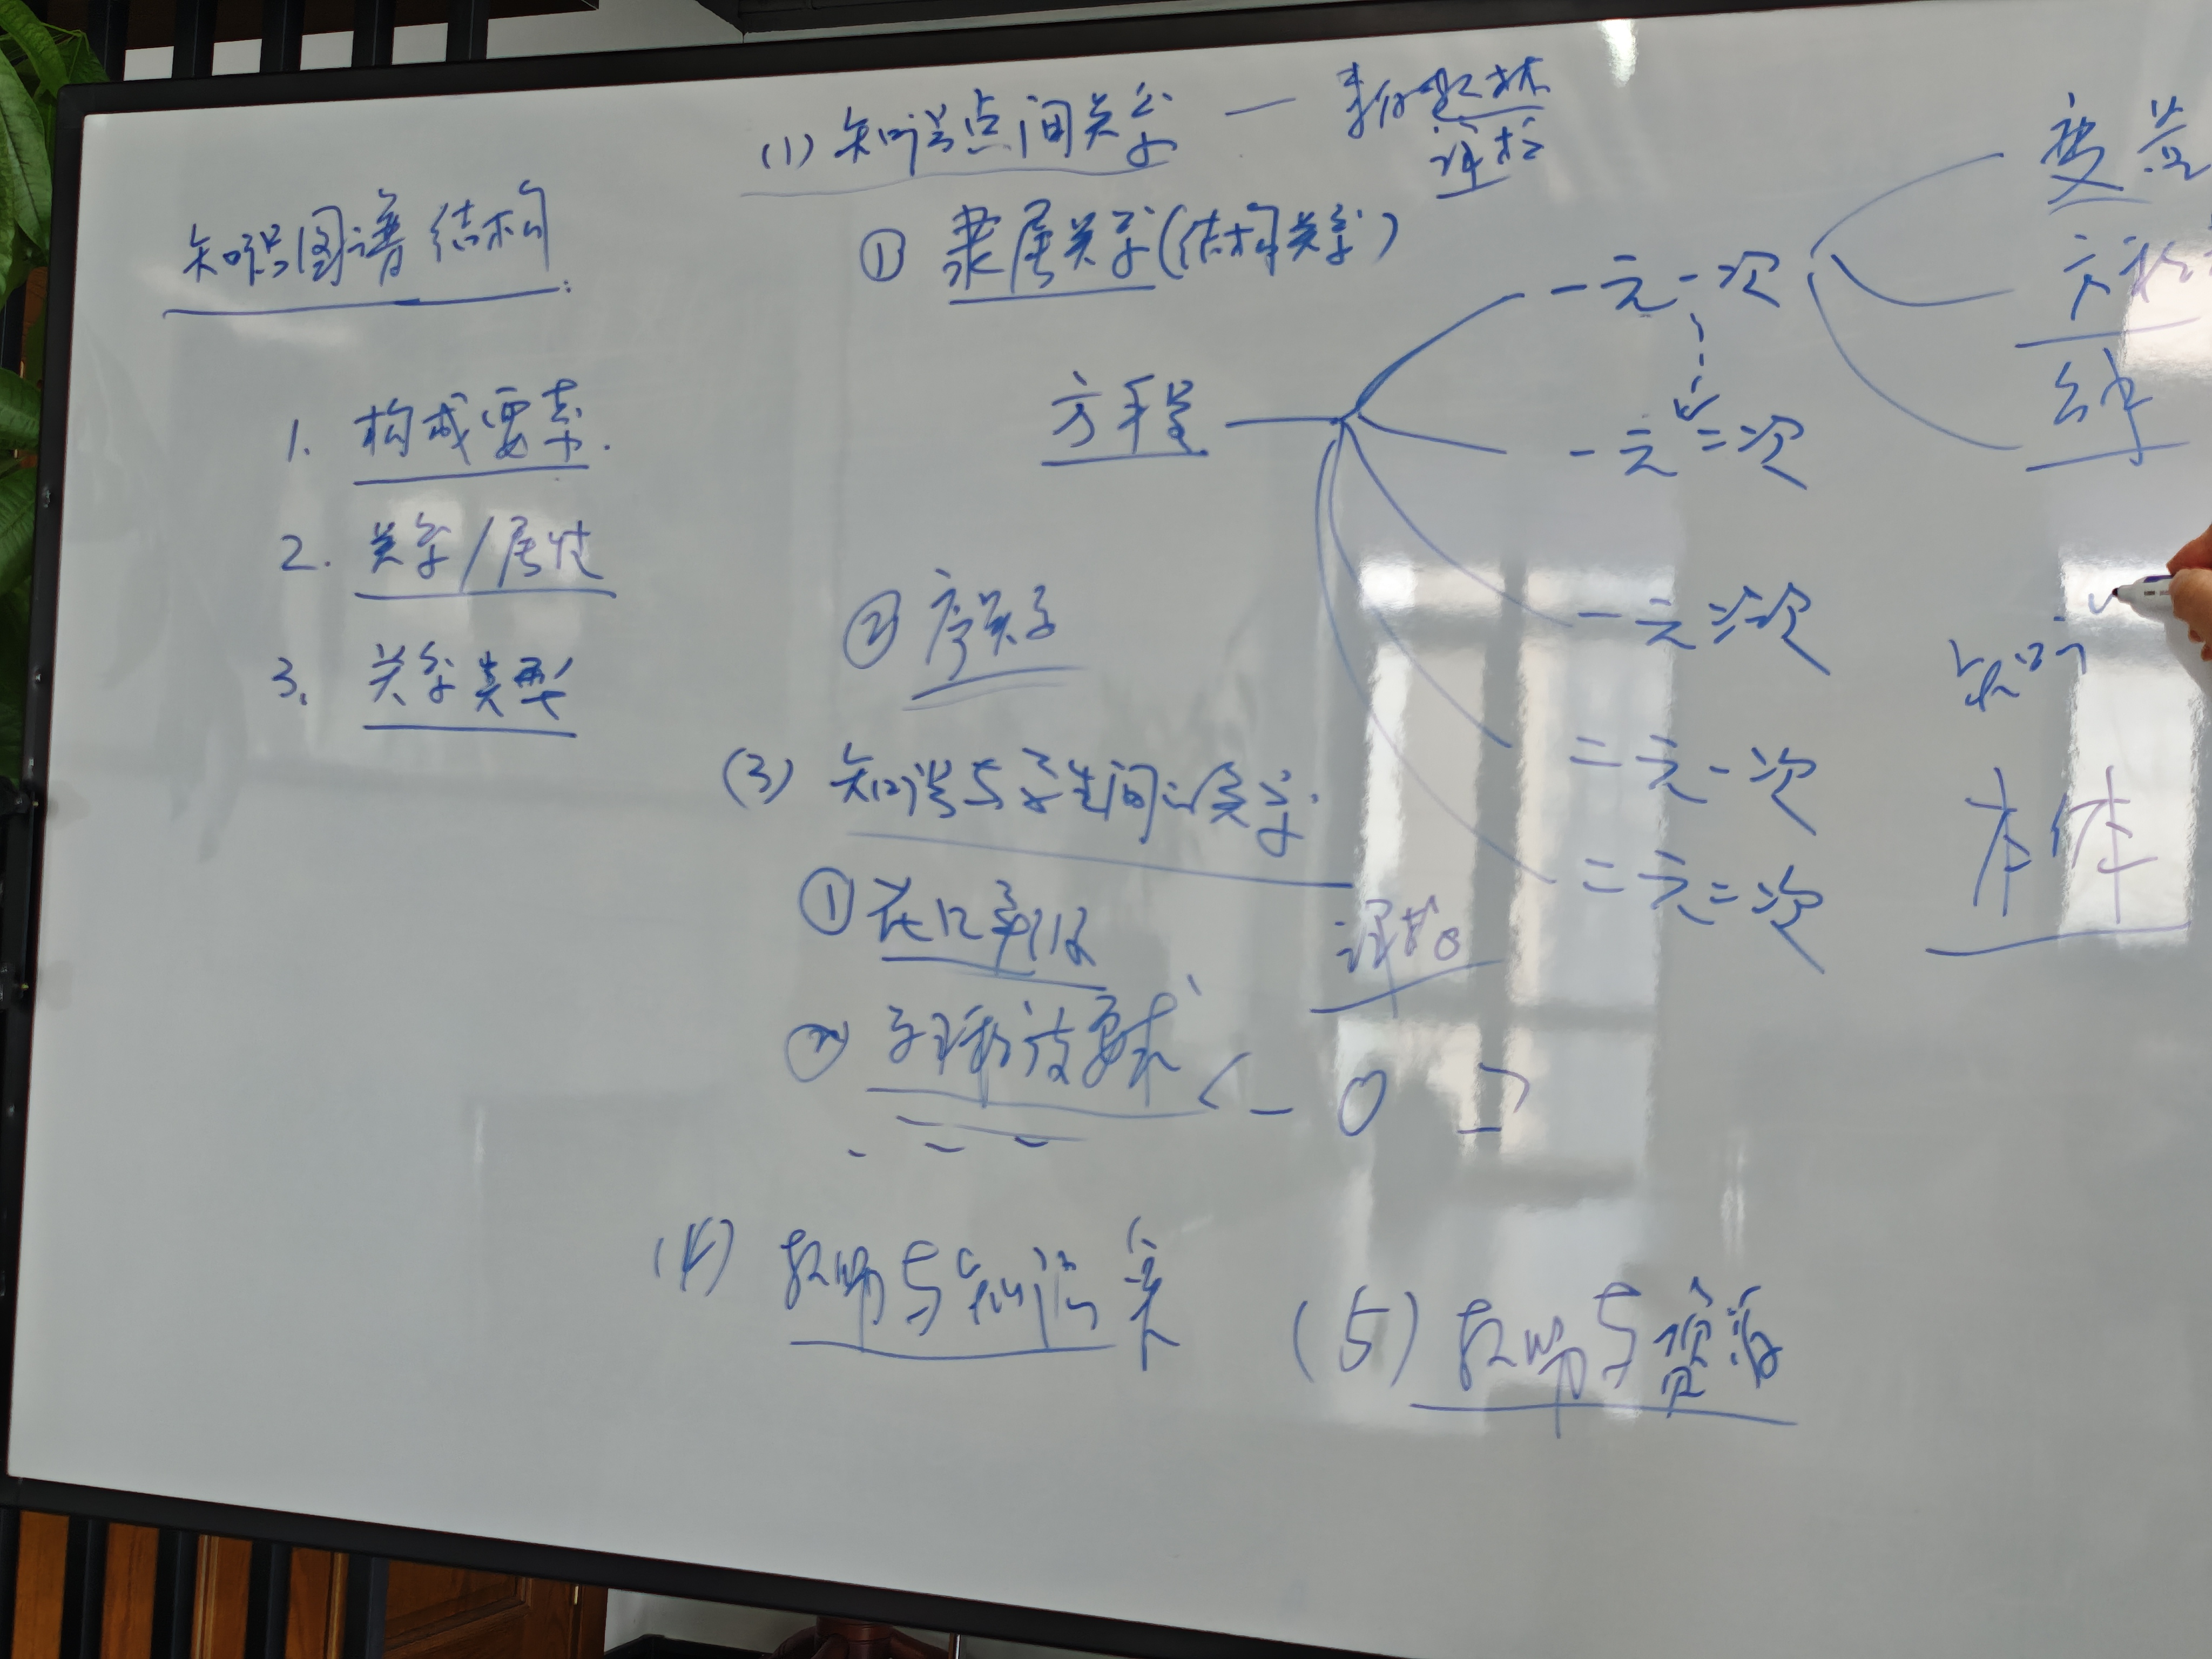 知识图谱结构:
1. 构成要素.
2. 关系/属性
3. 关系类型
(1) 知识点间关系 — 教材
课标
① 隶属关系(结构关系)
方程
一元一次
一元二次
一元三次
二元一次
二元二次
变量
方程
② 序关系
知识
本体
(3) 知识与学生间的关系.
①
② 要求
(4) 教师与知识关
(5) 教师与资源